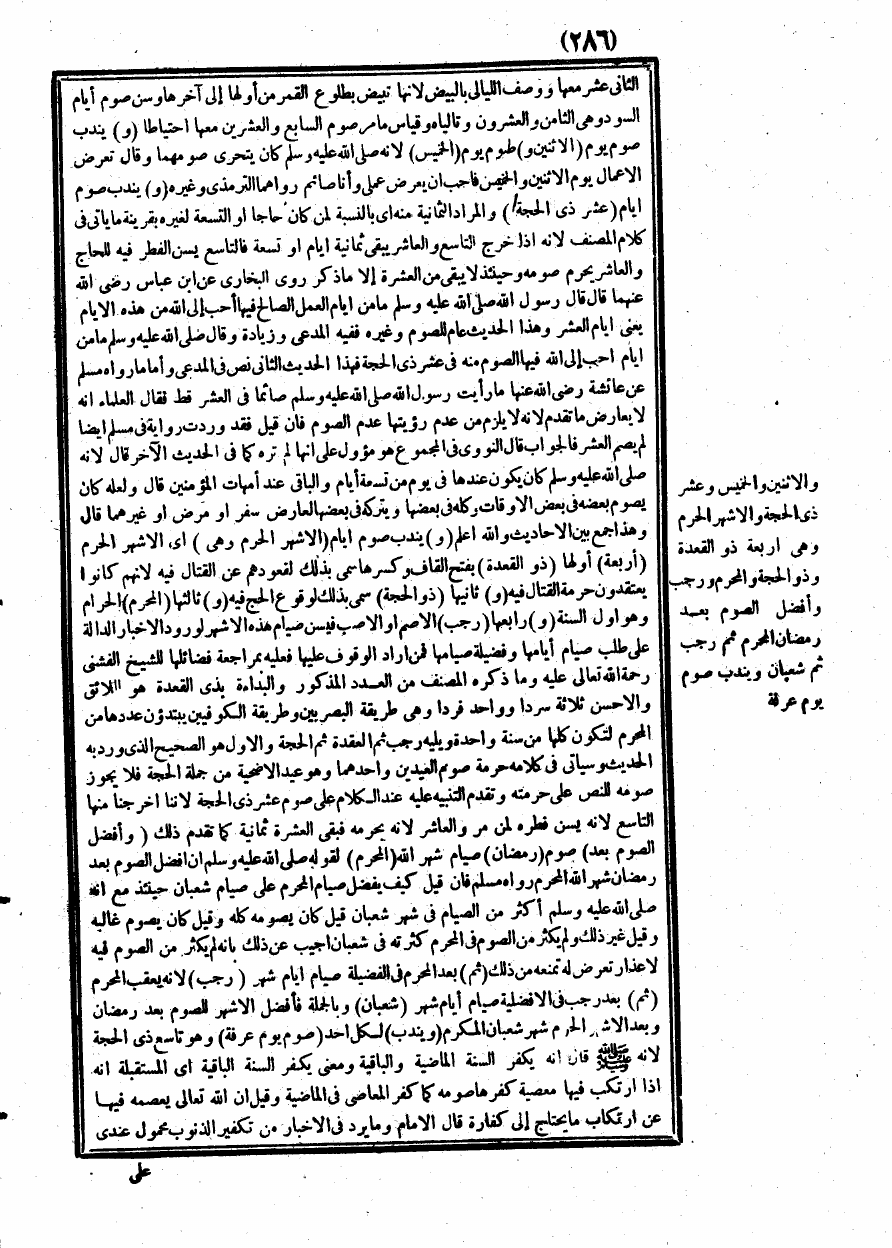 (٢٨٦)
الثانى عشر معها ووصف الليالى بالبيض لانها تبيض بطلوع القمر من أولها إلى آخرها وسن صوم أيام
السود وهى الثامن والعشرون وتالياه وقياس مامر صوم السابع والعشرين معها احتياطا (و) يندب
صوم يوم (الاثنين و) صوم يوم (الخميس) لانه صلى الله عليه وسلم كان يتحرى صومهما وقال تعرض
الاعمال يوم الاثنين والخميس فاحب ان يعرض عملى وأنا صائم رواهما الترمذى وغيره (و) يندب صوم
ايام (عشر ذى الحجة) والمراد الثمانية منه اى بالنسبة لمن كان حاجا او التسعة لغيره بقرينة ما يأتى فى
كلام المصنف لانه اذا خرج التاسع والعاشر يبقى ثمانية ايام او تسعة فالتاسع يسن الفطر فيه للحاج
والعاشر يحرم صومه وحينئذ لا يبقى من العشرة إلا ماذكر روى البخارى عن ابن عباس رضى الله
عنهما قال قال رسول الله صلى الله عليه وسلم مامن ايام العمل الصالح فيها أحب إلى الله من هذه الايام
يعنى ايام العشر وهذا الحديث عام للصوم وغيره ففيه المدعى وزيادة وقال صلى الله عليه وسلم مامن
ايام احب إلى الله فيها الصوم منه فى عشر ذى الحجة فهذا الحديث الثانى نص فى المدعى وأما مارواه مسلم
عن عائشة رضى الله عنها مارأيت رسول الله صلى الله عليه وسلم صائما فى العشر قط فقال العلماء انه
لا يعارض ماتقدم لانه لا يلزم من عدم رؤيتها عدم الصوم فان قيل فقد وردت رواية فى مسلم ايضا
لم يصم العشر فالجواب قال النووى فى المجموع هو مؤول على انها لم تره كما فى الحديث الآخر قال لانه
صلى الله عليه وسلم كان يكون عندها فى يوم من تسعة أيام والباقى عند أمهات المؤمنين قال ولعله كان
يصوم بعضه فى بعض الاوقات وكله فى بعضها ويتركه فى بعضها لعارض سفر او مرض او غيرهما قال
وهذا جمع بين الاحاديث والله اعلم (و) يندب صوم ايام (الاشهر الحرم وهى) اى الاشهر الحرم
(أربعة) أولها (ذو القعدة) بفتح القاف وكسرها سمى بذلك لقعودهم عن القتال فيه لانهم كانوا
يعتقدون حرمة القتال فيه (و) ثانيها (ذو الحجة) سمى بذلك لوقوع الحج فيه (و) ثالثها (المحرم) الحرام
وهو اول السنة (و) رابعها (رجب) الاصم او الاصب فيسن صيام هذه الاشهر لورود الاخبار الدالة
على طلب صيام أيامها وفضيلة صيامها فمن اراد الوقوف عليها فعليه بمراجعة فضائلها للشيخ الفشنى
رحمة الله تعالى عليه وما ذكره المصنف من العدد المذكور والبداءة بذى القعدة هو اللائق
والاحسن ثلاثة سردا وواحد فردا وهى طريقة البصريين وطريقة الكوفيين يبتدؤن عددها من
المحرم لتكون كلها من سنة واحدة ويليه رجب ثم العقدة ثم الحجة والاول هو الصحيح الذى ورد به
الحديث وسياتى فى كلامه حرمة صوم العيدين واحدهما وهو عيد الاضحية من جملة الحجة فلا يجوز
صومه للنص على حرمته وتقدم التنبيه عليه عند الكلام على صوم عشر ذى الحجة لاننا اخرجنا منها
التاسع لانه يسن فطره لمن مر والعاشر لانه يحرمه فبقى العشرة ثمانية كما تقدم ذلك (وأفضل
الصوم بعد) صوم (رمضان) صيام شهر الله (المحرم) لقوله صلى الله عليه وسلم ان افضل الصوم بعد
رمضان شهر الله المحرم رواه مسلم فان قيل كيف يفضل صيام المحرم على صيام شعبان حينئذ مع انه
صلى الله عليه وسلم أكثر من الصيام فى شهر شعبان قيل كان يصومه كله وقيل كان يصوم غالبه
وقيل غير ذلك ولم يكثر من الصوم فى المحرم كثرته فى شعبان اجيب عن ذلك بانه لم يكثر من الصوم فيه
لاعذار تعرض له تمنعه من ذلك (ثم) بعد المحرم فى الفضيلة صيام ايام شهر (رجب) لانه يعقب المحرم
(ثم) بعد رجب فى الافضلية صيام أيام شهر (شعبان) وبالجملة فأفضل الاشهر للصوم بعد رمضان
وبعد الاشهر الحرم شهر شعبان المكرم (ويندب) لكل احد (صوم يوم عرفة) وهو تاسع ذى الحجة
لانه ﷺ قال انه يكفر السنة الماضية والباقية ومعنى يكفر السنة الباقية اى المستقبلة انه
اذا ارتكب فيها معصية كفرها صومه كما كفر المعاضى فى الماضية وقيل ان الله تعالى يعصمه فيها
عن ارتكاب مايحتاج إلى كفارة قال الامام ومايرد فى الاخبار من تكفير الذنوب محمول عندى
على
والاثنين والخميس وعشر
ذى الحجة والاشهر الحرم
وهى اربعة ذو القعدة
وذو الحجة والمحرم ورجب
وأفضل الصوم بعد
رمضان المحرم ثم رجب
ثم شعبان ويندب صوم
يوم عرفة